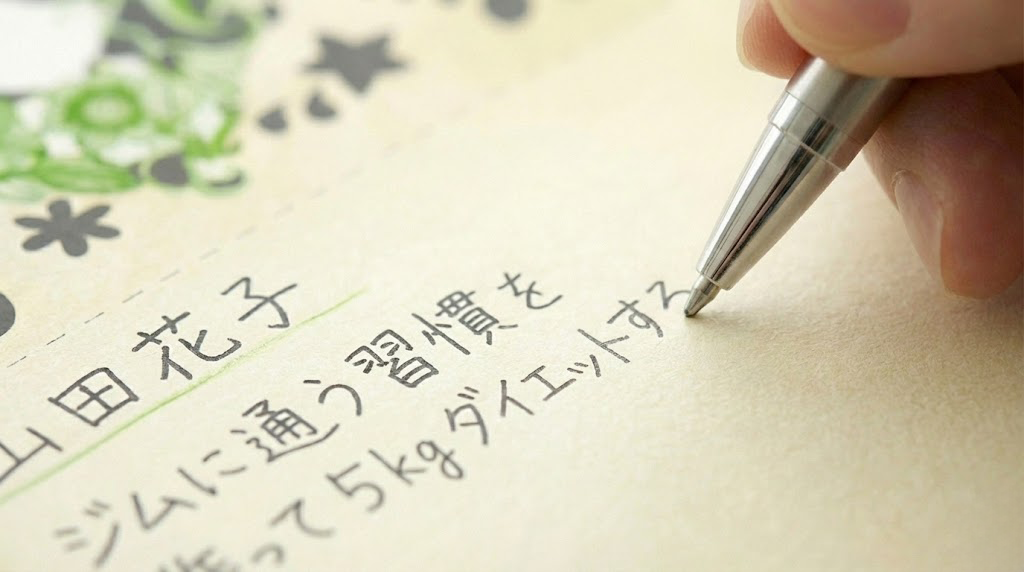 山田花子
ジムに通う習慣を
作って5kgダイエットする